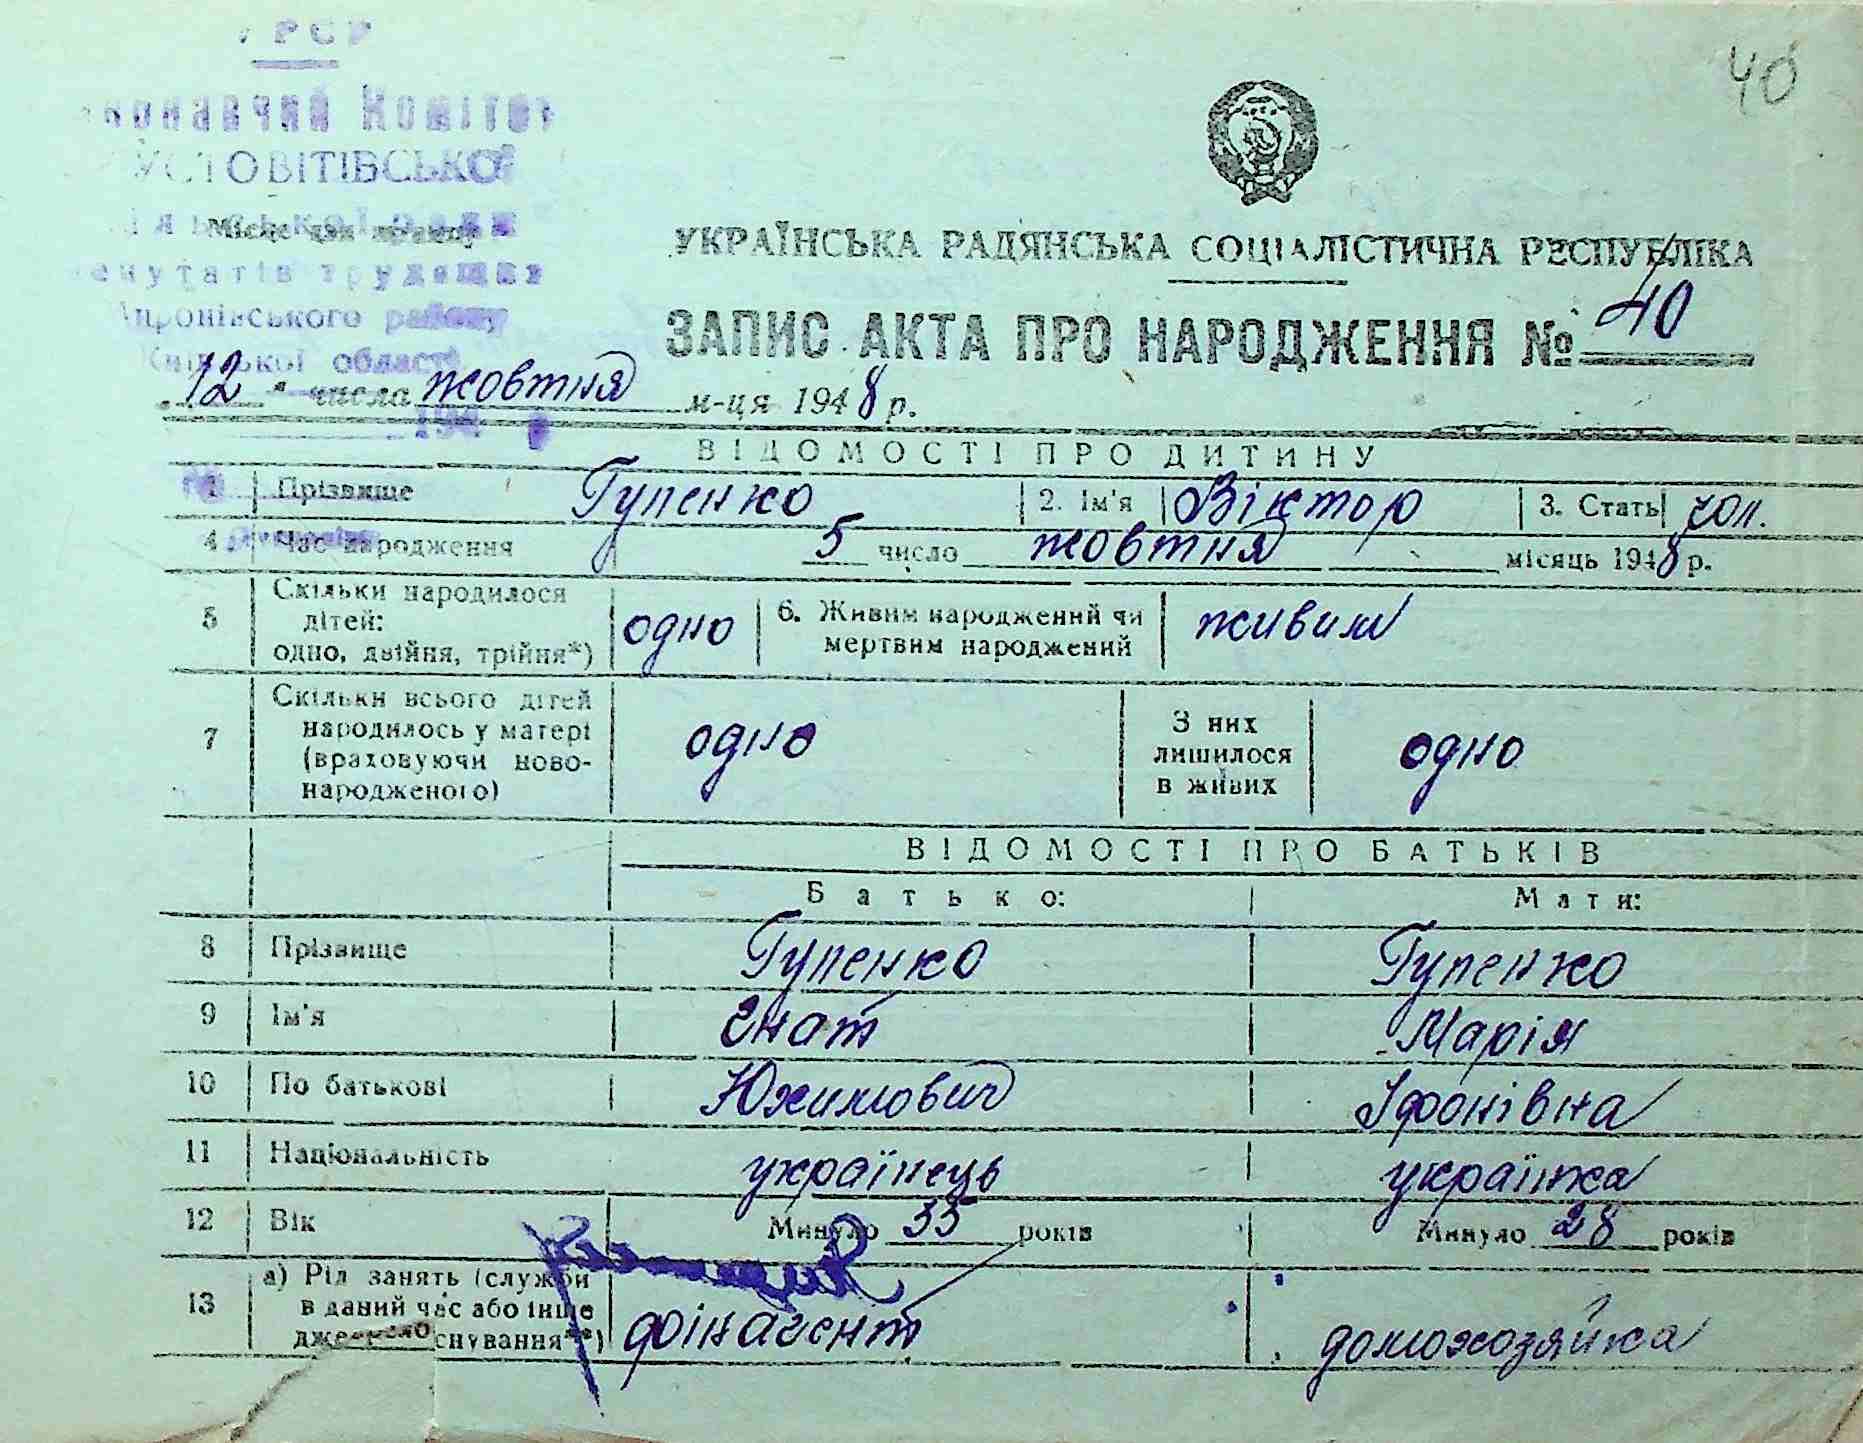 УРСР
40
Виконавчий Комітет
УСТОВІТІВСЬКОЇ
сільської ради
Місце для штампу
депутатів трудящих
УКРАЇНСЬКА РАДЯНСЬКА СОЦІАЛІСТИЧНА РЕСПУБЛІКА
району
Київської області
ЗАПИС АКТА ПРО НАРОДЖЕННЯ № 40
12 " числа жовтня м-ця 1948 р.
194 р
ВІДОМОСТІ ПРО ДИТИНУ
1 Прізвище Гупенко 2. Ім'я Віктор 3. Стать чол.
4 Час народження 5 число жовтня місяць 1948 р.
5 Скільки народилося дітей: одно, двійня, трійня*) одно 6. Живим народжений чи мертвим народжений живим
7 Скільки всього дітей народилось у матері (враховуючи ново-народженого) одно З них лишилося в живих одно
ВІДОМОСТІ ПРО БАТЬКІВ
Батько: Мати:
8 Прізвище Гупенко Гупенко
9 Ім'я Гнат Марія
10 По батькові Юхимович Іфонівна
11 Національність українець українка
12 Вік Минуло 35 років Минуло 28 років
13 а) Рід занять (служби в даний час або інше джерело існування**) фінагент домохозяйка